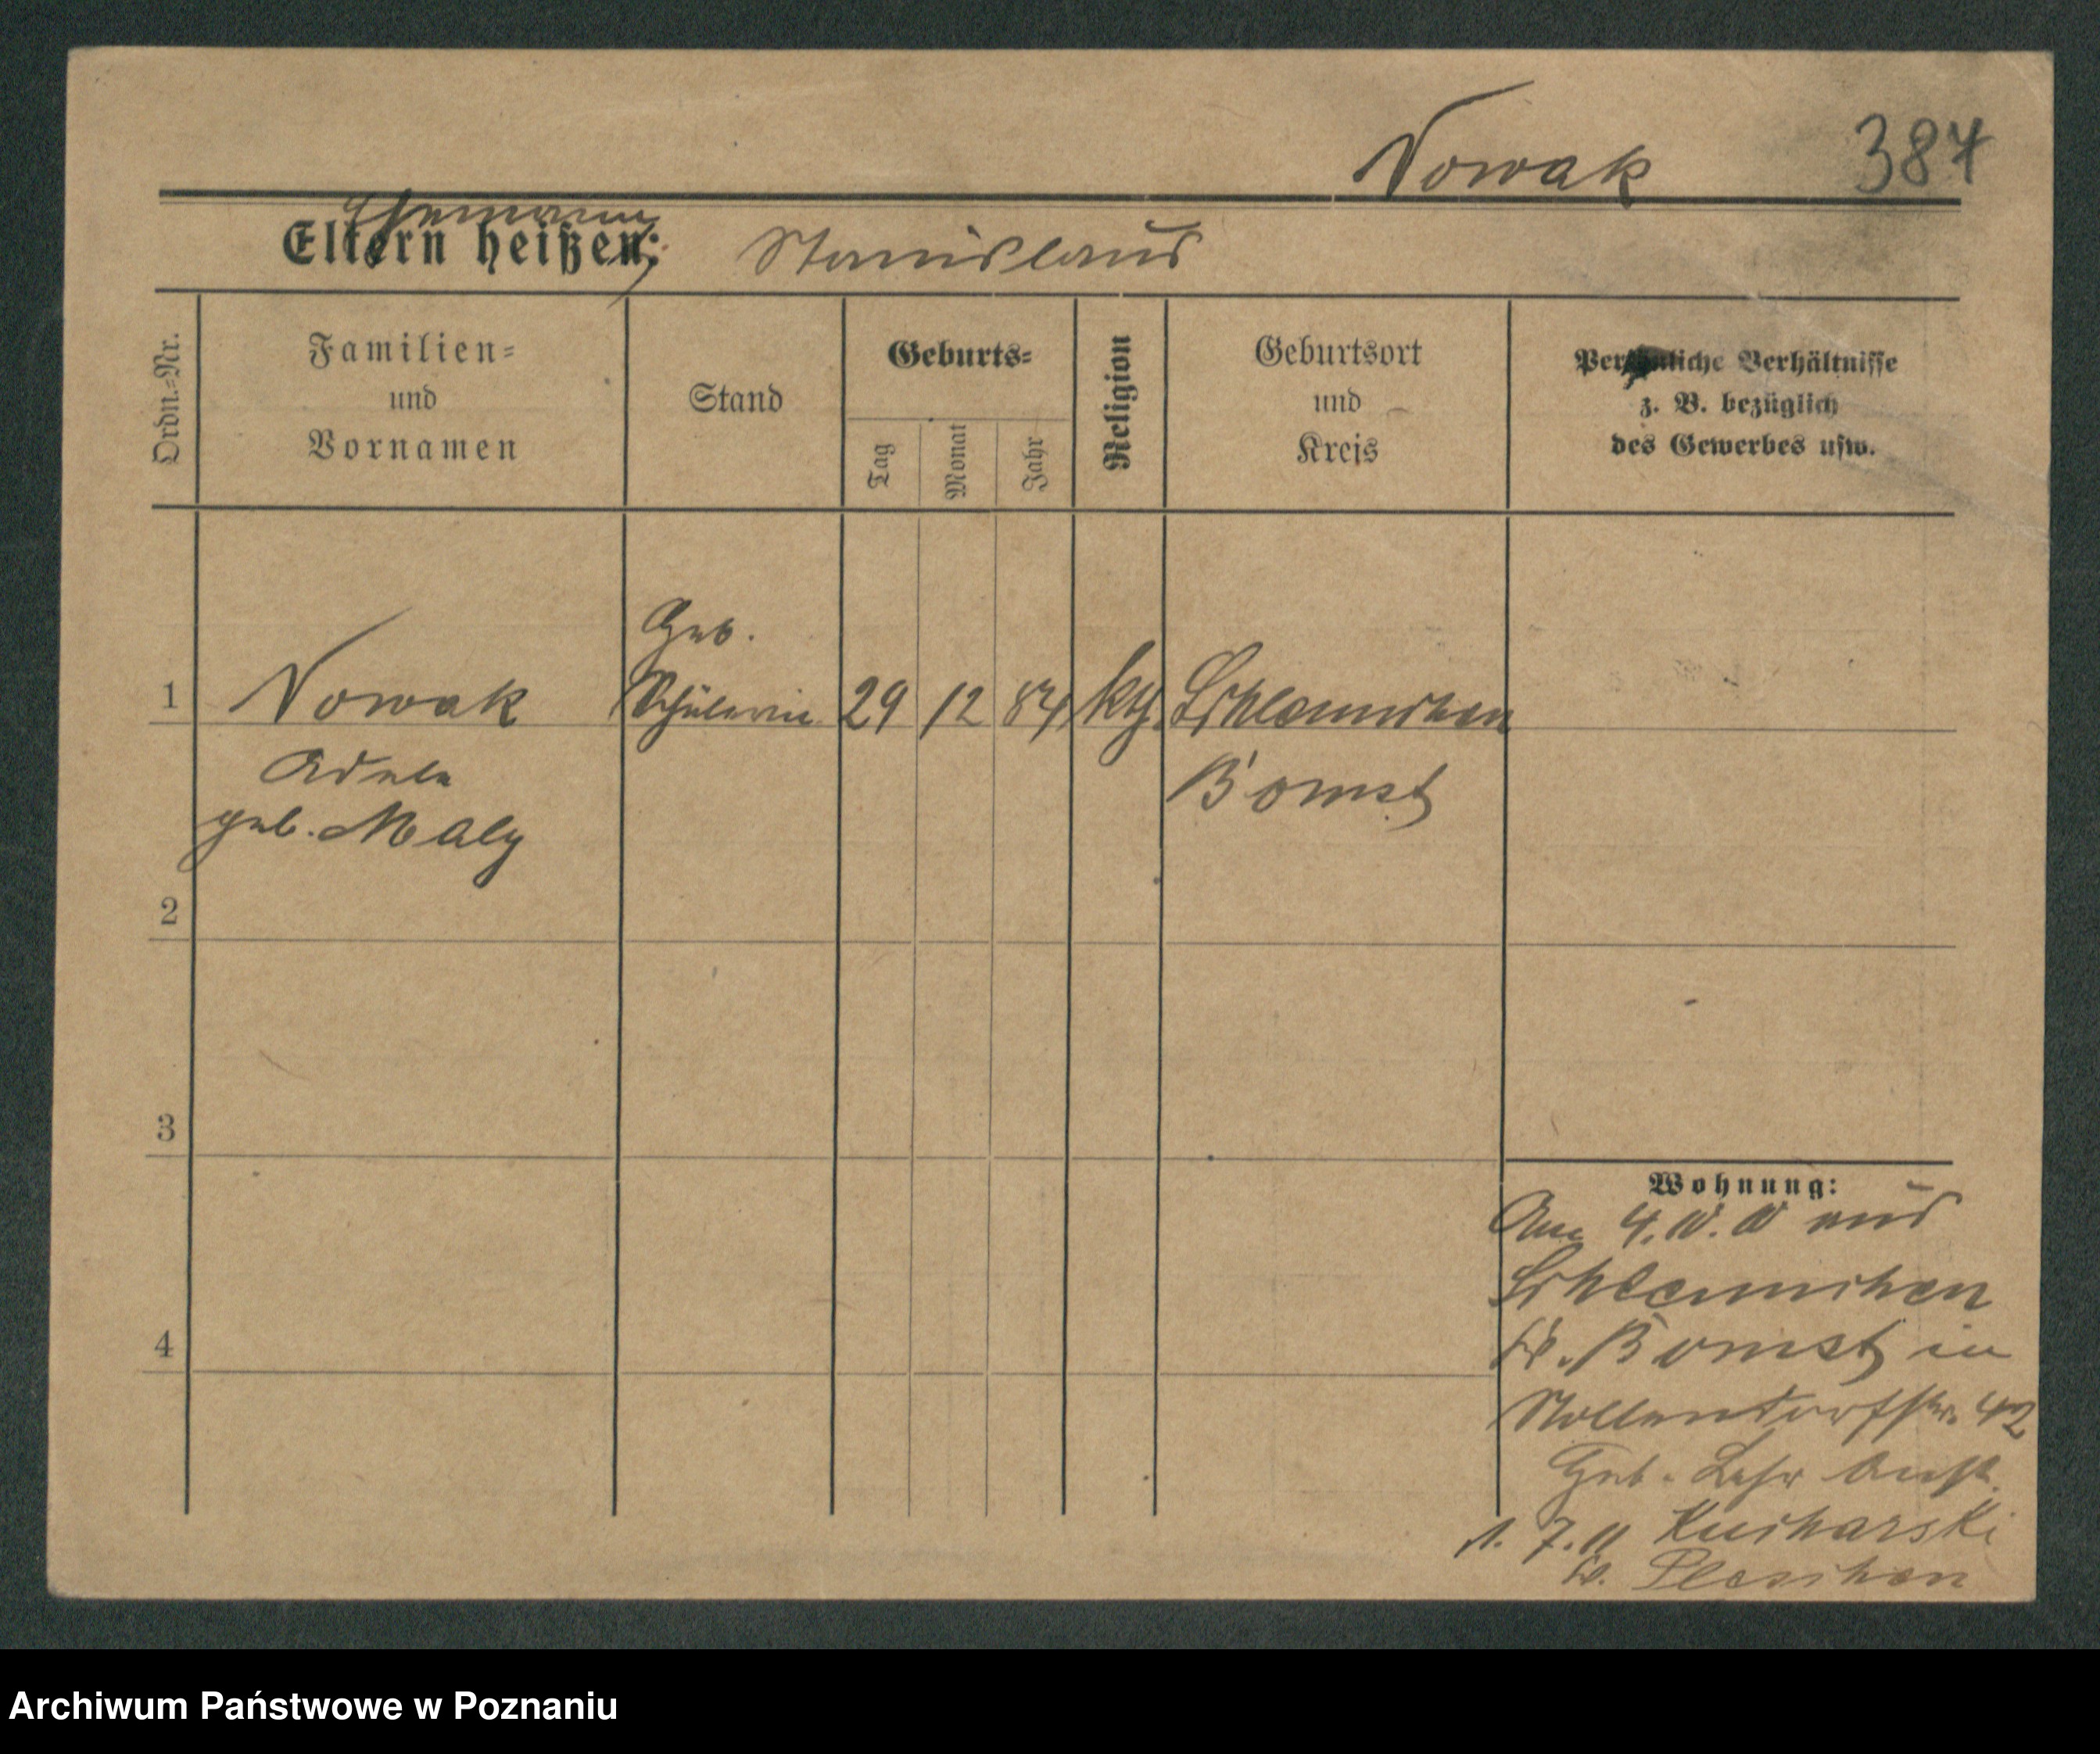 Nowak 387
Ehemann
Eltern heißen: Stanislaus
Ordn.-Nr.
Familien-
und
Vornamen
Stand
Geburts-
Tag
Monat
Jahr
Religion
Geburtsort
und
Kreis
Persönliche Verhältnisse
z. B. bezüglich
des Gewerbes usw.
Geb.
1 Nowak Schülerin 29 12 84 kth.
Adela Bomst
geb. Maly
2
3
4
Wohnung:
Am 4. 10. 10 aus
Kr. Bomst in
Nollendorfstr. 42
Geb. Lehr Anst.
1. 7. 11 Kucharski
Kr.
Archiwum Państwowe w Poznaniu